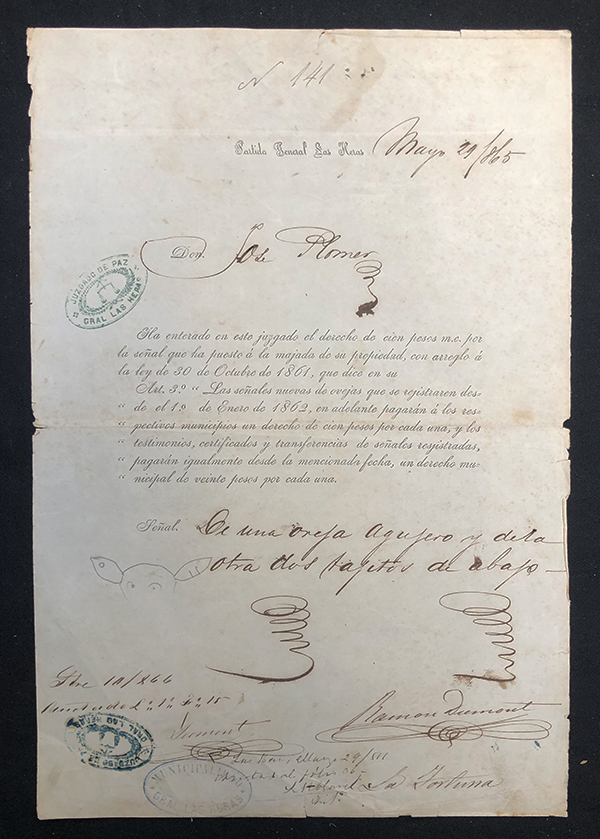 N 141
Partido General Las Heras Mayo 29/865
Don. Jose Plomer
JUZGADO DE PAZ
GRAL LAS HERAS
Ha enterado en este juzgado el derecho de cien pesos m.c. por
la señal que ha puesto á la majada de su propiedad, con arreglo á
la ley de 30 de Octubre de 1861, que dice en su
Art. 3.º “ Las señales nuevas de ovejas que se registraren des-
“ de el 1.º de Enero de 1862, en adelante pagarán á los res-
“ pectivos municipios un derecho de cien pesos por cada una, y los
“ testimonios, certificados y transferencias de señales resjistradas,
“ pagarán igualmente desde la mencionada fecha, un derecho mu-
“ nicipal de veinte pesos por cada una.
Señal. De una oreja agujero y de la
otra dos tajitos de abajo-
19/866
Ramon Dumont
Dumont
JUZGADO DE
GRAL LAS HERAS
Las Heras, Marzo 29/
MUNICIPALIDAD
GRAL LAS HERAS
La Fortuna